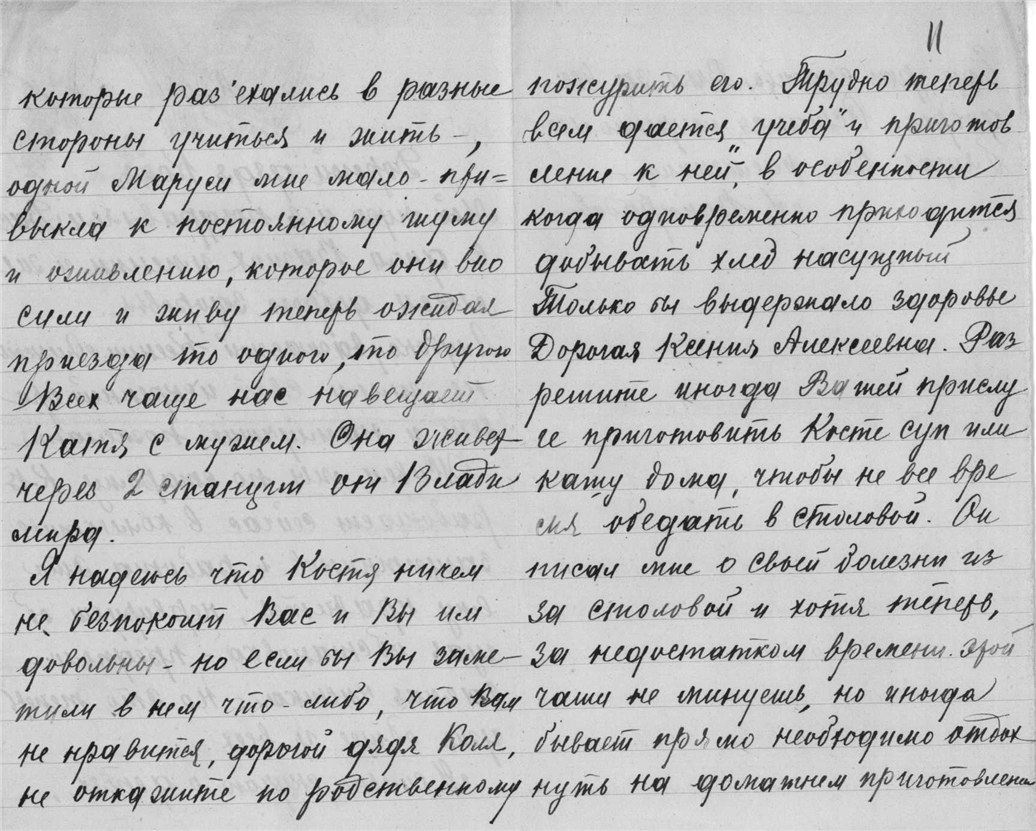 11
которые раз'ехались в разные
стороны учиться и жить –,
одной Маруси мне мало – при=
выкла к постоянному шуму
и оживлению, которое они вно
сили и живу теперь ожидая
приезда то одного, то другого
Всех чаще нас навещает
Катя с мужем. Она живет
через 2 станции от Влади
мира.
Я надеюсь что Костя ничем
не безпокоит Вас и Вы им
довольны – но если бы Вы заме–
тили в нем что-либо, что Вам
не нравится, дорогой дядя Коля,
не откажите по родственному
пожурить его. Трудно теперь
всем дается „учеба" и приготов
ление к ней, в особенности
когда одновременно приходится
добывать хлеб насущный
Только бы выдержало здоровье
Дорогая Ксения Алексеевна. Раз
решите иногда Вашей прислу
ге приготовить Косте суп или
кашу дома, чтобы не все вре
мя обедать в столовой. Он
писал мне о своей болезни из
за столовой и хотя теперь,
за недостатком времени этой
чаши не минуешь, но иногда
бывает прямо необходимо отдох
нуть на домашнем приготовлении